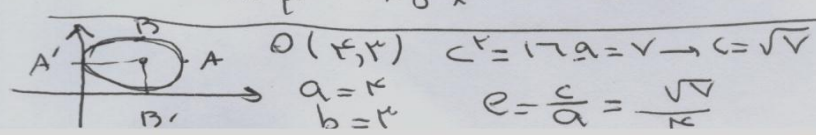 B
A' A O(۴,۳) c^۲=۱۶-۹=۷ → c=√۷
a=۴
b=۳ e=c/a=√۷/۴
B'